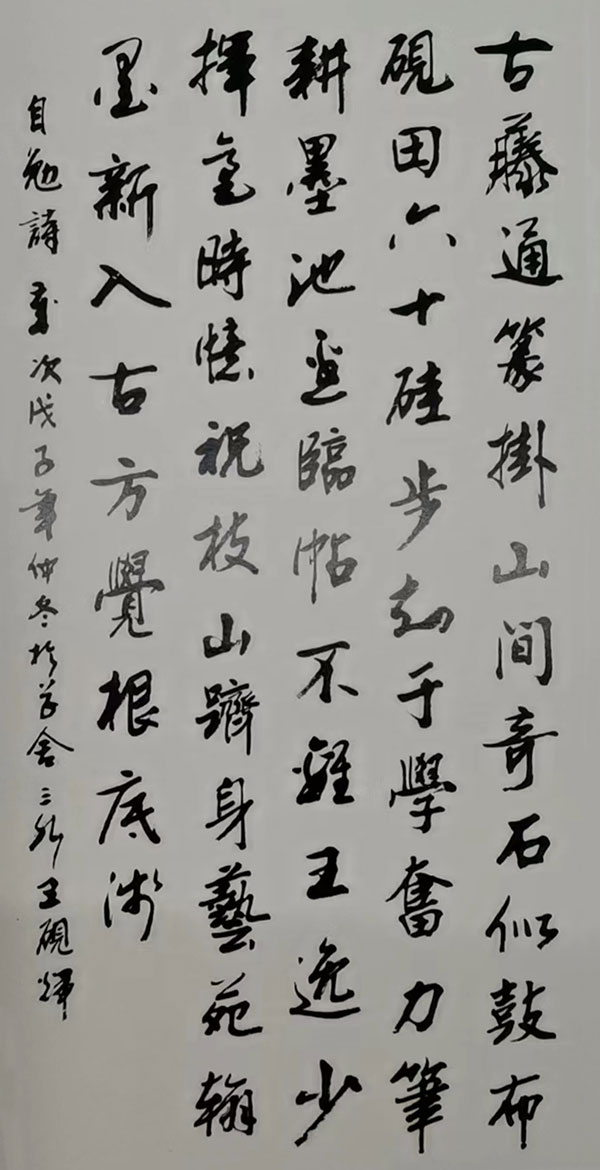 古藤通篆掛山間奇石似鼓布
硯田六十硅步于學奮力筆
耕墨池臨帖不離王逸少
揮毫時憶祝枝山躋身藝苑翰
墨新入古方覺根底淺
自勉詩歲次戊子年仲冬於草舍王硯輝